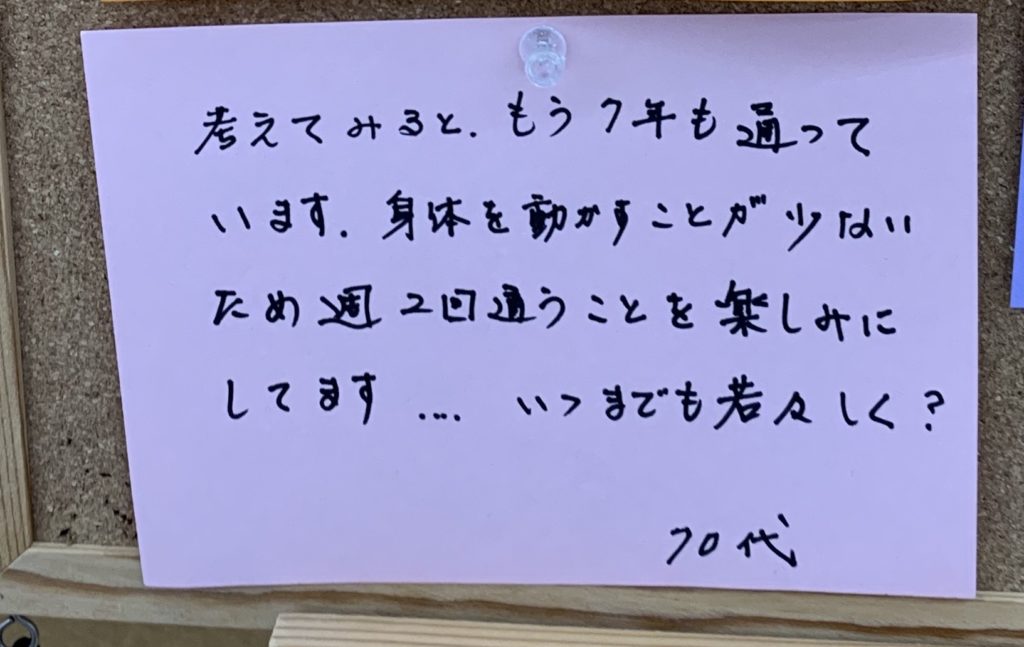 考えてみると、もう7年も通って
います。身体を動かすことが少ない
ため週2回通うことを楽しみに
してます .... いつまでも若々しく?
70代